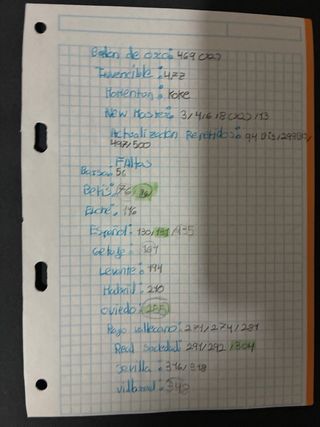 Balon de oro: 469(x2)
Invencible: 477
Momentum: Koke
New Master: 3/4/6/8(x2)/13
Actualización Repetidos: 94 Bis/293Bis/
497/500
FALTAS
Barsa: 56
Betis: 76/86
Elche: 116
Español: 130/131/135
Getafe: 167
Levante: 194
Madrid: 210
Oviedo: 255
Rayo vallecano: 271/274/281
Real Sociedad: 291/292/304
Sevilla: 316/318
Villareal: 342